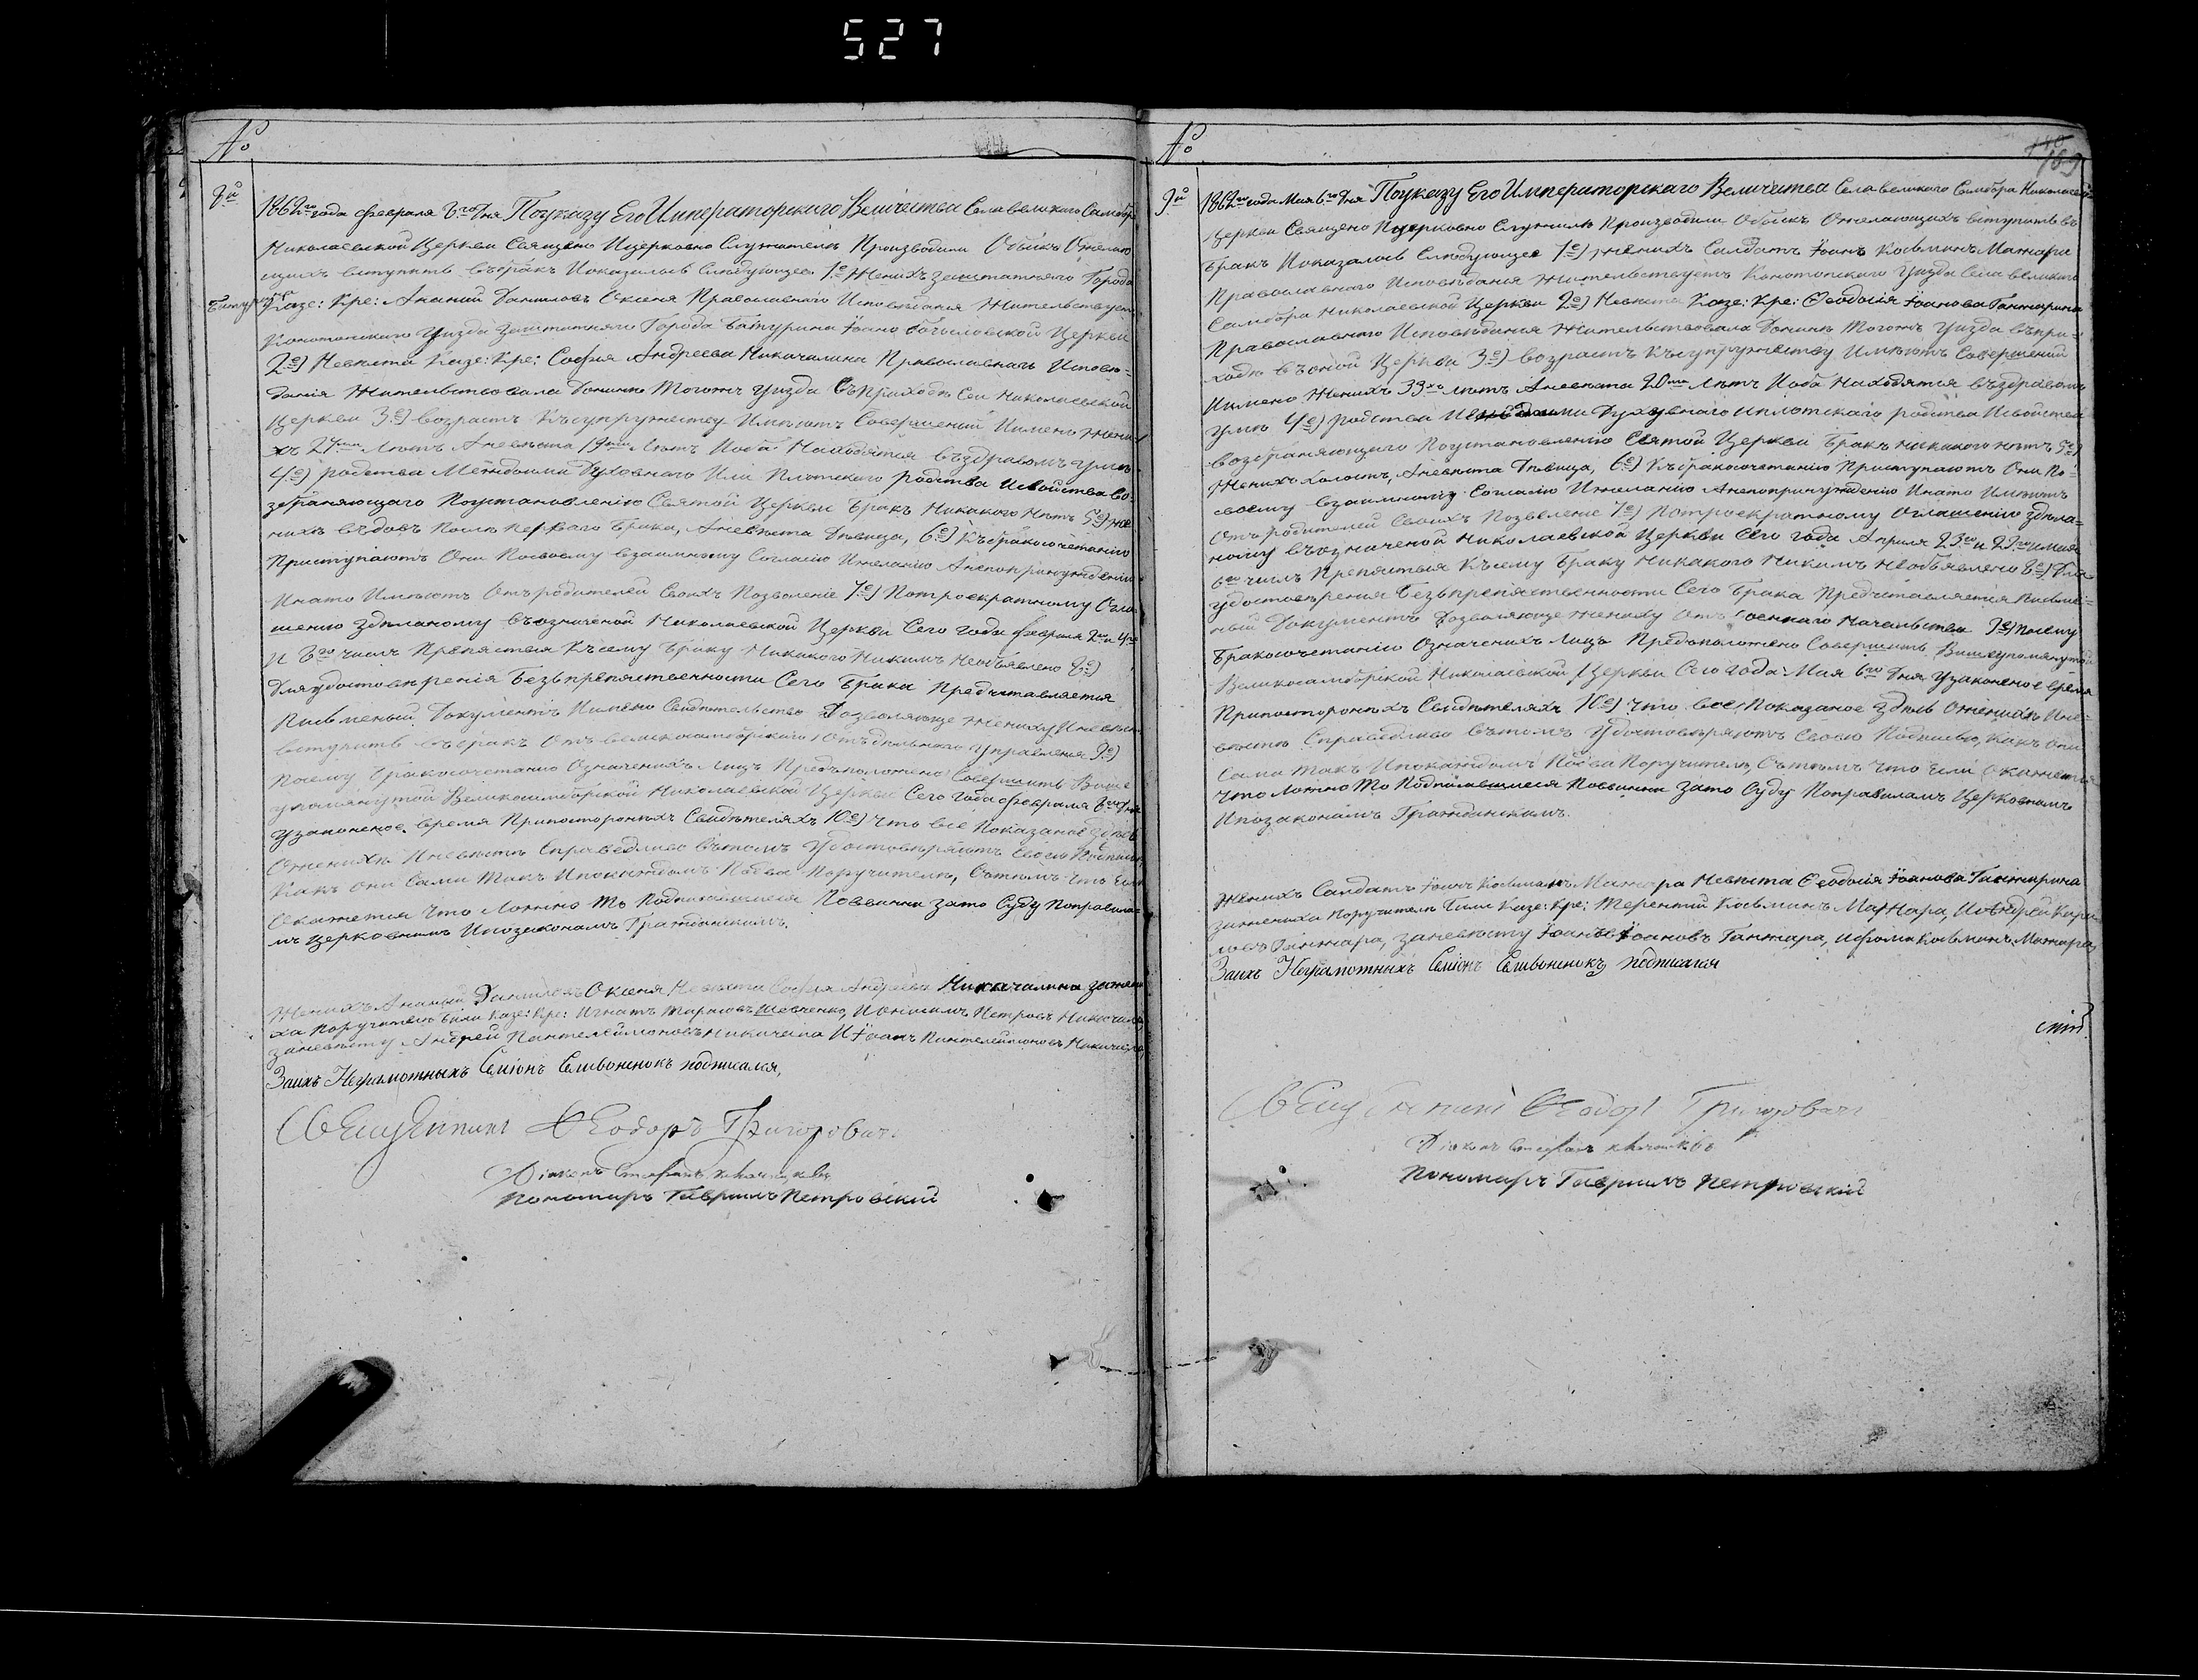 527
№
8й
1862го года февраля 6го дня По указу Его Императорскаго Величества Села великаго Самбора
Николаевской Церкви Священо Ицерковно Служители Производили Обыскъ Ожелаю
щихъ вступить въбракъ Ипоказалось Слѣдующее 1е) Женихъ Заштатнаго Города
Батурина Казе: Кре: Ананий Даниловъ Оксеня Православнаго Исповѣданія Жительствуетъ
Конотопскаго Уизда Заштатнаго Города Батурина Іоано Церкви
2е) Невѣста Казе: Кре: София Андреева Никачалина Православнаго Исповѣ-
данія Жительствовала Донинѣ Тогожъ Уизда Въприходѣ Сей Николаевской
Церкви 3е) возрастъ Късупружеству Имѣютъ Совершений Иимено Жени
хъ 24 Лѣтъ Аневѣста 19 Лѣтъ Иоба Находятся въздравомъ умѣ
4е) родства Междоими Духовнаго Или Плотскаго родства Исвойства во-
збраняющаго Поустановленію Святой Церкви Бракъ Никакого Нѣтъ 5е) Же
нихъ въдовъ Послѣ перваго брака, Аневѣста Дѣвица, 6е) Къбракосочетанію
Приступаютъ Они Посвоему взаимному Согласію Ижеланію Анепопринужденію
Инато Имѣютъ Отъродителей Своихъ Позволеніе 7е) Потроекратному Огла
шенію Здѣланому въозначеной Николаевской Церкви Сего года февраля 2го 4го
И 6го числъ Препятствія Късему Браку Никакого Никимъ Необъявлено 8е)
Дляудостовѣренія Безъпрепятственности Сего Брака Предъставляется
Письменый Документъ Иимено Свидѣтельство Дозволяюще Жениху Иневѣстѣ
вступить въбракъ Отъ великосамборскаго Отъдѣльнаго Управленія 9е)
Посему Бракосочетанію Означенихъ Лицъ Предъположено Совершить Више
упомянутой Великосамборской Николаевской Церкви Сего года февраля 6го дня
Узаконеное время Припостороньхъ Свидѣтеляхъ 10е) Что все Показаное Здѣсь
Оженихѣ Иневѣстѣ Справедливо Вътомъ Удостовѣряютъ Своею Подписью
Какъ они Сами Такъ Ипокаждомъ Подва Поручителя, Сътимъ Что Если
Окажется Что Ложно То Подписавшиеся Повинни Зато Суду Поправила-
мъ Церковнимъ Ипозаконамъ Гражданскимъ.
Женихъ Ананый Даниловъ Оксеня Невѣста София Андреева Никачалина зажени
ха Поручители Били Казе: Кре: Игнатъ Тарасовъ Шевченко, Петровъ Никачало
заневѣсту Андрей Пантелеймоновъ Никачала И Іоанъ Пантелеймоновъ Никачало,
Заихъ Неграмотныхъ Семіонъ Селивоненокъ подписался,
Священникъ Феодоръ Григоровичъ
Діаконъ Стефанъ
Пономаръ Гавриилъ Петровскій
№
169
9й
1862го года Мая 6го дня По указу Его Императорскаго Величества Села великаго Самбора Николаевской
Церкви Священо Ицерковно Служители Производили Обыскъ Ожелающихъ вступить въ
Бракъ Ипоказалось Слѣдующее 1е) Женихъ Салдатъ Іоанъ Косьминъ Мажара
Православнаго Исповѣданія Жительствуетъ Конотопскаго Уизда Села великаго
Самбора Николаевской Церкви 2е) Невѣста Казе: Кре: Феодосія Іоанова Ганжарина
Православнаго Исповѣданія Жительствовала Донинѣ Тогожъ Уизда въпри-
ходѣ въоной Церкви 3е) возрастъ Късупружеству Имѣютъ Совершений
Иимено Женихъ 39 лѣтъ Аневѣста 20 Лѣтъ Иоба Находятся въздравомъ
умѣ 4е) родства Духовнаго Иплотскаго родства Исвойства
возбраняющаго Поустановленію Святой Церкви Бракъ Никакого нѣтъ 5е)
Женихъ Холостъ, Аневѣста Дѣвица, 6е) Къбракосочетанію Приступаютъ Они По
своему взаимному Согласію Ижеланію Анепопринужденію Инато Имѣютъ
Отъродителей Своихъ Позволеніе 7е) Потроекратному Оглашенію Здѣла-
ному въозначеной Николаевской Церкви Сего года Апреля 23го и 29го имая
6го числъ Препятствія Късему Браку Никакого Никимъ Необъявлено 8е) Для
удостовѣренія Безъпрепятственности Сего Брака Предъставляется Письме-
ный Документъ Дозволяюще Жениху Отъ военнаго Начальства 9е) Посему
Бракосочетанію Означенихъ Лицъ Предъположено Совершить Вишеупомянутой
Великосамборской Николаевской Церкви Сего года Мая 6го Дня Узаконеное время
Припостороньхъ Свидѣтеляхъ 10е) Что все Показаное Здѣсь Оженихѣ Ине-
вѣстѣ Справедливо Вътомъ Удостовѣряютъ Своею Подписью, Какъ они
Сами Такъ Ипокаждомъ Подва Поручителя, Сътимъ Что Если Окажется
Что Ложно То Подписавшиеся Повинни Зато Суду Поправиламъ Церковнимъ
Ипозаконамъ Гражданскимъ.
Женихъ Салдатъ Іоанъ Косьминъ Мажара Невѣста Феодосія Іоанова Ганжарина
зажениха Поручители Били Казе: Кре: Терентий Косьминъ Мажара, Иандрей
Ганжара, заневѣсту Іоановъ Ганжара, Косьминъ Мажара,
Заихъ Неграмотныхъ Семіонъ Селивоненокъ подписался
Священникъ Феодоръ Григоровичъ
Діаконъ Стефанъ
Пономаръ Гавриилъ Петровскій